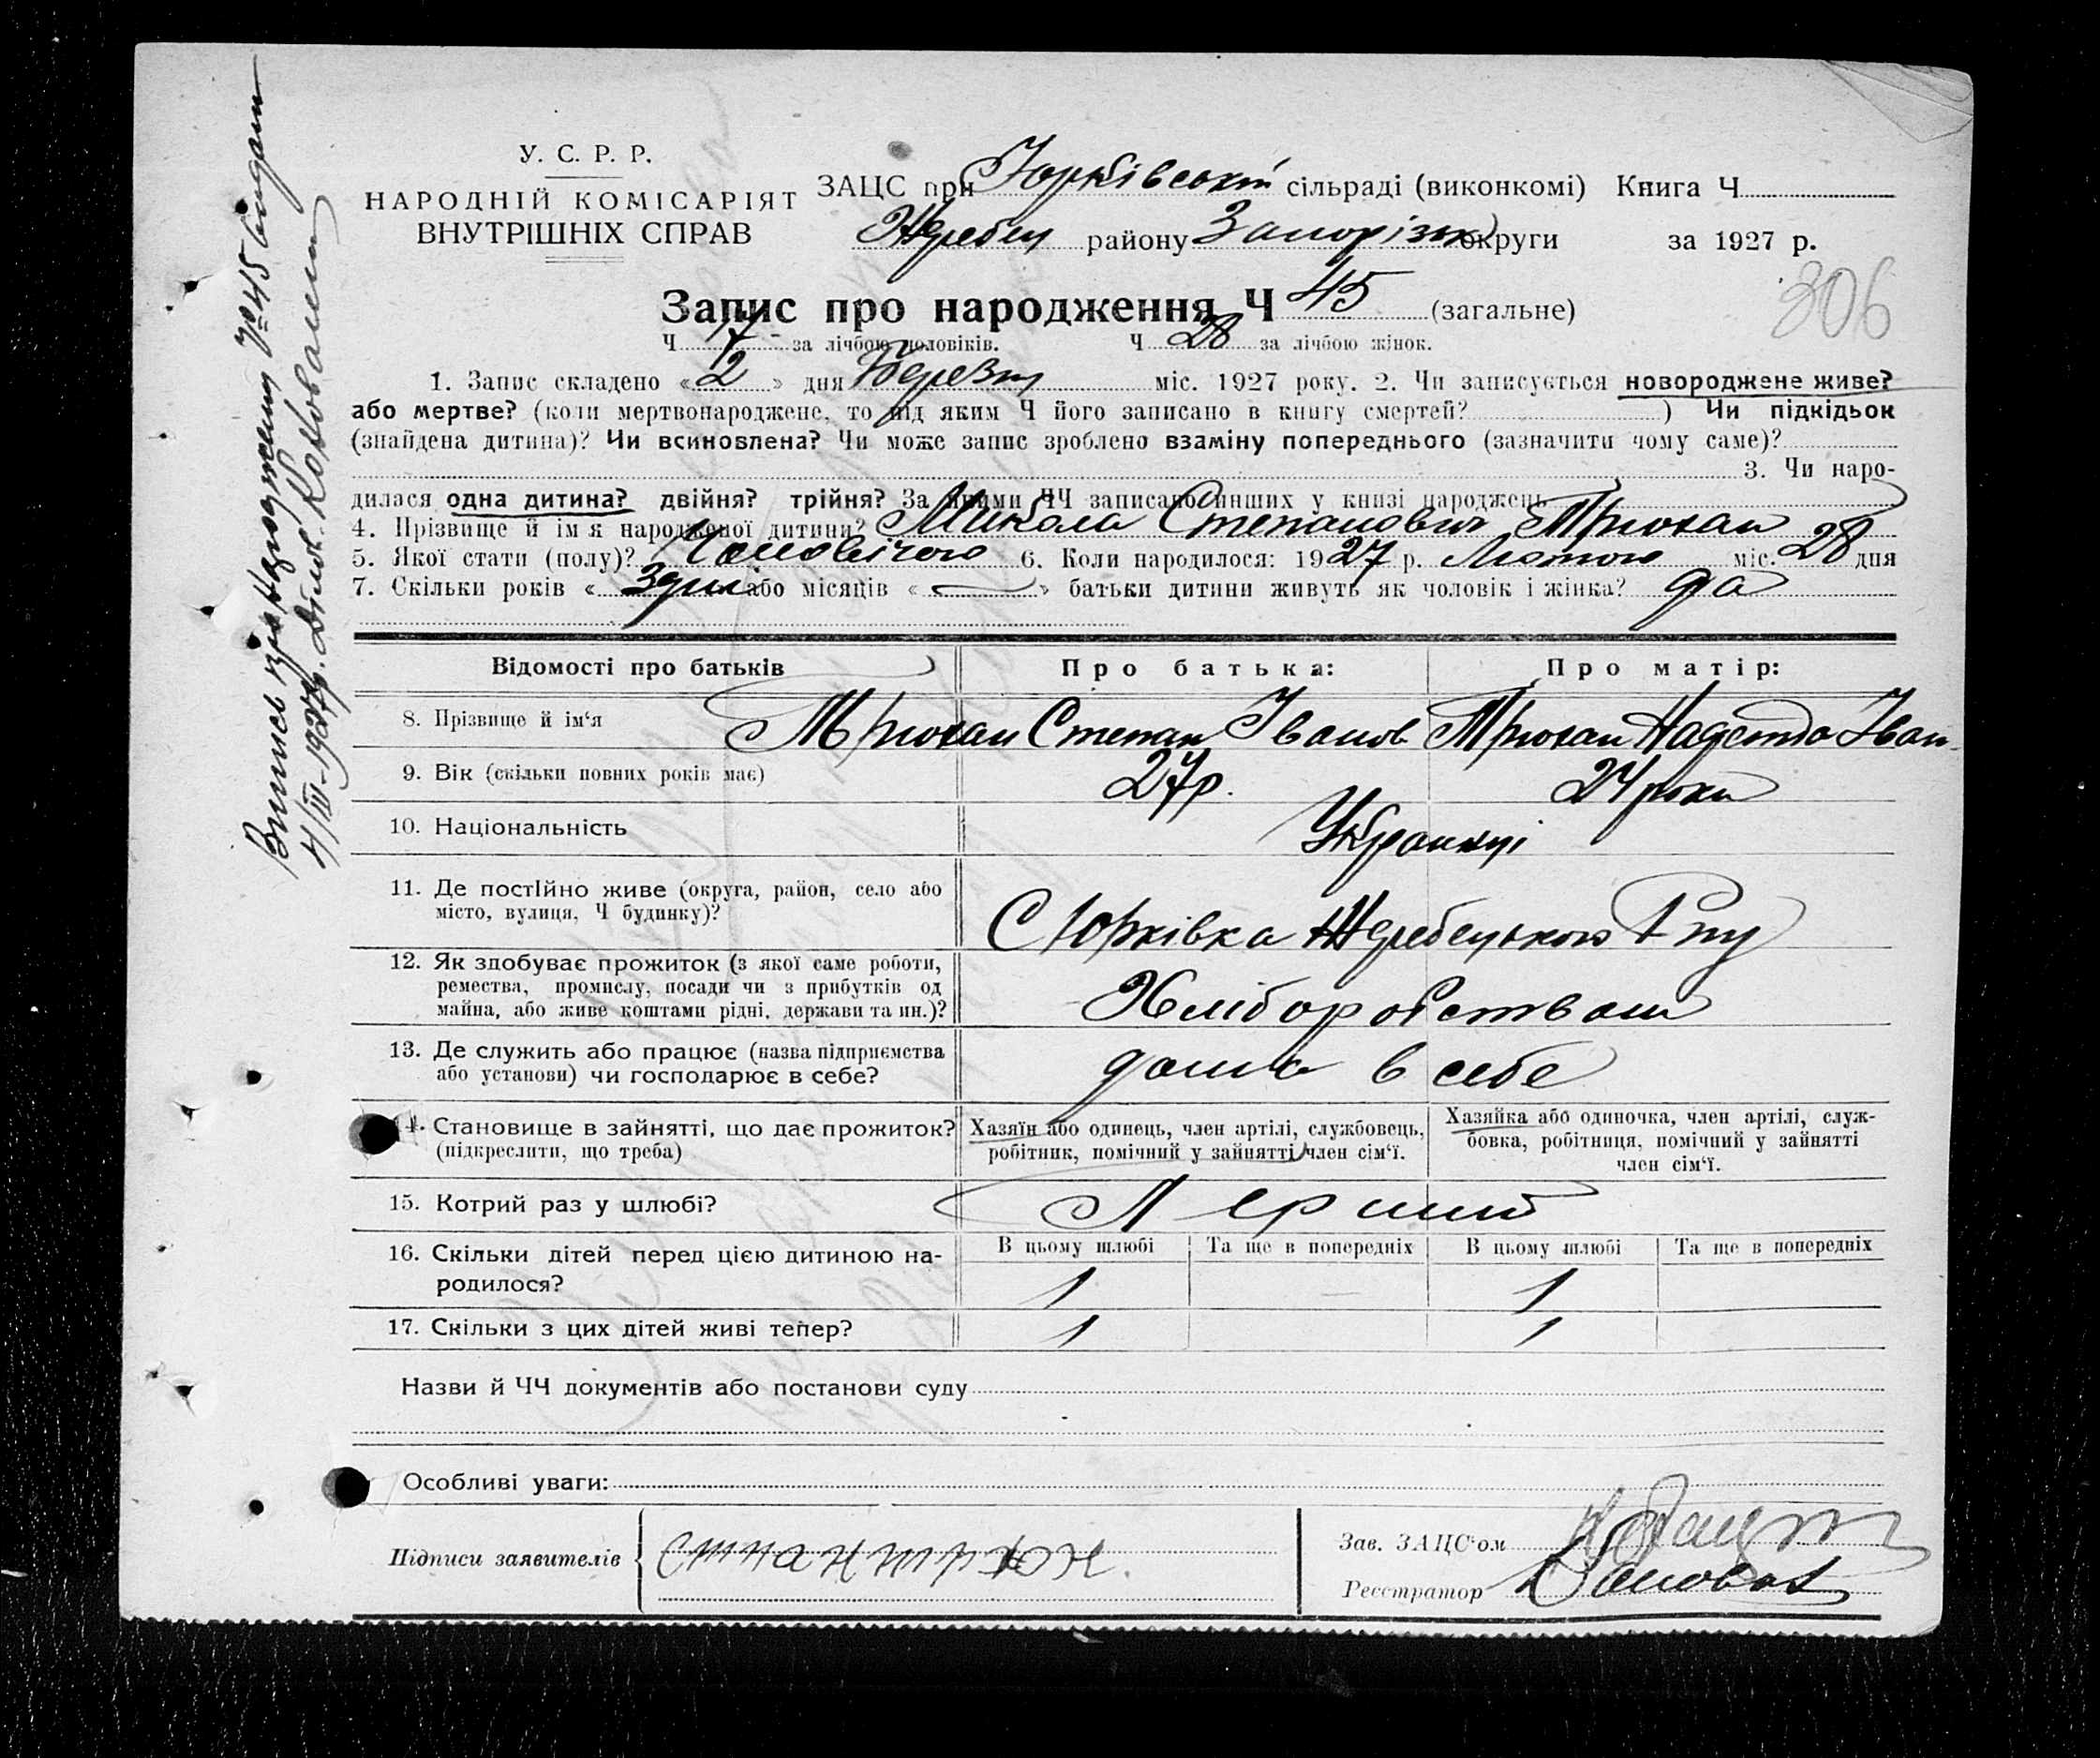 У. С. Р. Р.
НАРОДНІЙ КОМІСАРІЯТ
ВНУТРІШНІХ СПРАВ
ЗАЦС при Юрківській сільраді (виконкомі) Книга Ч
Жеребец району Запорізьк округи за 1927 р.
306
Запис про народження Ч 45 (загальне)
Ч 17 за лічбою чоловіків. Ч 28 за лічбою жінок.
1. Запис складено «2» дня Березня міс. 1927 року. 2. Чи записується новороджене живе?
або мертве? (коли мертвонароджене, то під яким Ч його записано в книгу смертей? ) Чи підкідьок
(знайдена дитина)? Чи всиновлена? Чи може запис зроблено взаміну попереднього (зазначити чому саме)?
3. Чи наро-
дилася одна дитина? двійня? трійня? За якими ЧЧ записано инших у книзі народжень
4. Прізвище й ім'я народженої дитини? Микола Степанович Трюхан
5. Якої стати (полу)? Чоловічого 6. Коли народилося: 1927 р. Лютого міс. 28 дня
7. Скільки років « або місяців « » батьки дитини живуть як чоловік і жінка? да
Відомості про батьків Про батька: Про матір:
8. Прізвище й ім'я Трюхан Степан Іванов Трюхан Надежда Іван
9. Вік (скільки повних років має) 27р. 24 роки
10. Національність Українці
11. Де постійно живе (округа, район, село або
місто, вулиця, Ч будинку)?
С Юрківка Жеребецького Р ну
12. Як здобуває прожиток (з якої саме роботи,
ремества, промислу, посади чи з прибутків од
майна, або живе коштами рідні, держави та ин.)?
Хліборобством
13. Де служить або працює (назва підприємства
або установи) чи господарює в себе?
дома в себе
14. Становище в зайнятті, що дає прожиток?
(підкреслити, що треба)
Хазяїн або одинець, член артілі, службовець,
робітник, помічний у зайнятті член сім'ї.
Хазяйка або одиночка, член артілі, служ-
бовка, робітниця, помічний у зайнятті
член сім'ї.
15. Котрий раз у шлюбі? Перший
16. Скільки дітей перед цією дитиною на-
родилося?
В цьому шлюбі Та ще в попередніх В цьому шлюбі Та ще в попередніх
1 1
17. Скільки з цих дітей живі тепер? 1 1
Назви й ЧЧ документів або постанови суду
Особливі уваги:
Підписи заявителів
Зав. ЗАЦС'ом
Реєстратор
Випись про народження № 45 видали
4/III-1927р.